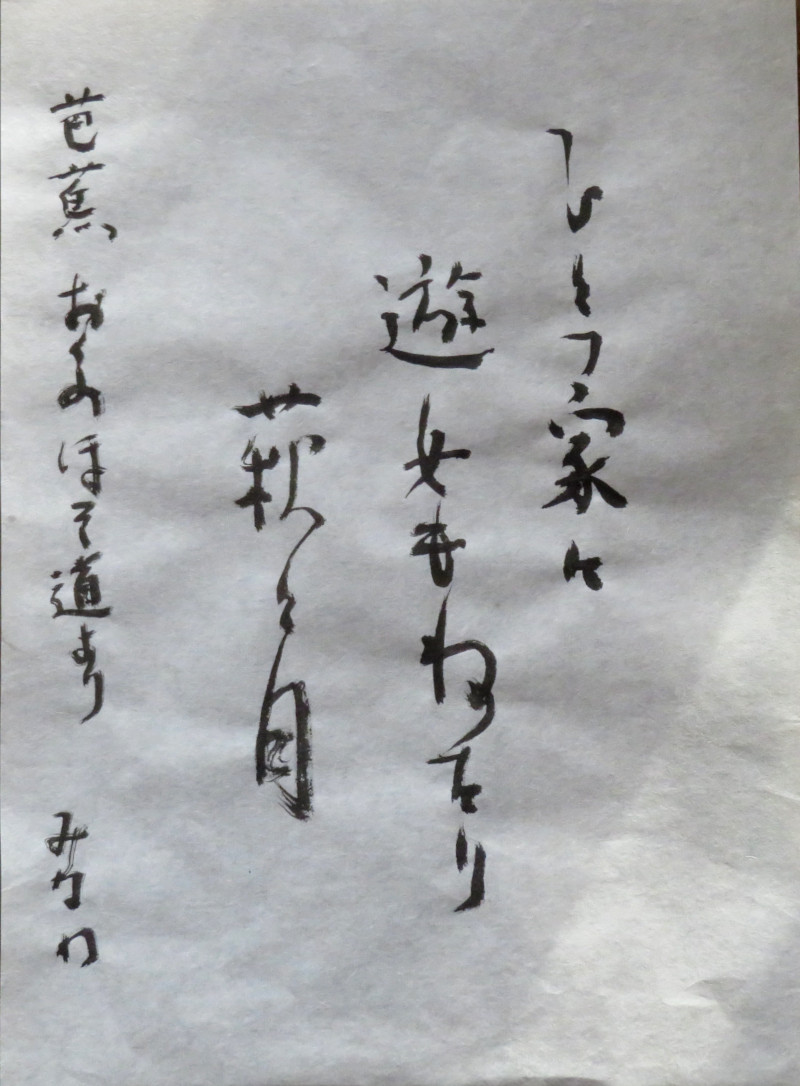 ひとつ家に
遊女もねたり
萩と月
芭蕉 おくのほそ道より みなわ